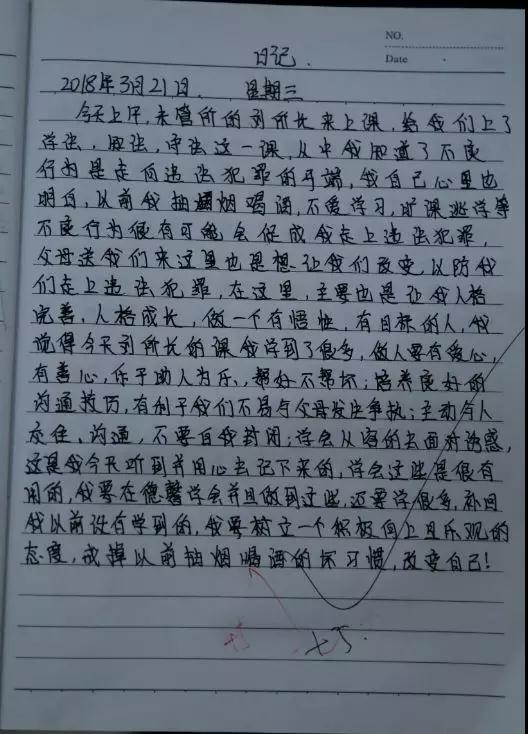 NO.
日记.
Date
2018年3月21日. 星期三
今天上午,未管所的刘所长来上课,给我们上了
学法,知法,守法这一课,从中我知道了不良
行为是走向违法犯罪的开端,我自己心里也
明白,以前我抽烟喝酒,不爱学习,旷课逃学等
不良行为便有可能会促成我走上违法犯罪,
父母送我们来这里也是想让我们改变,以防我
们走上违法犯罪,在这里,主要也是让我人格
完善,人格成长,做一个有悟性,有目标的人,我
觉得今天刘所长的课我学到了很多,做人要有爱心,
有善心,乐于助人为乐,帮好不帮坏;培养良好的
沟通技巧,有利于我们不易与父母发生争执;主动与人
交往、沟通,不要自我封闭;学会从容的去面对诱惑,
这是我今天听到并用心去记下来的,学会这些是很有
用的,我要在德馨学会并且做到这些,还要学很多,补回
我以前没有学到的,我要树立一个积极向上且乐观的
态度,戒掉以前抽烟喝酒的坏习惯,改变自己!